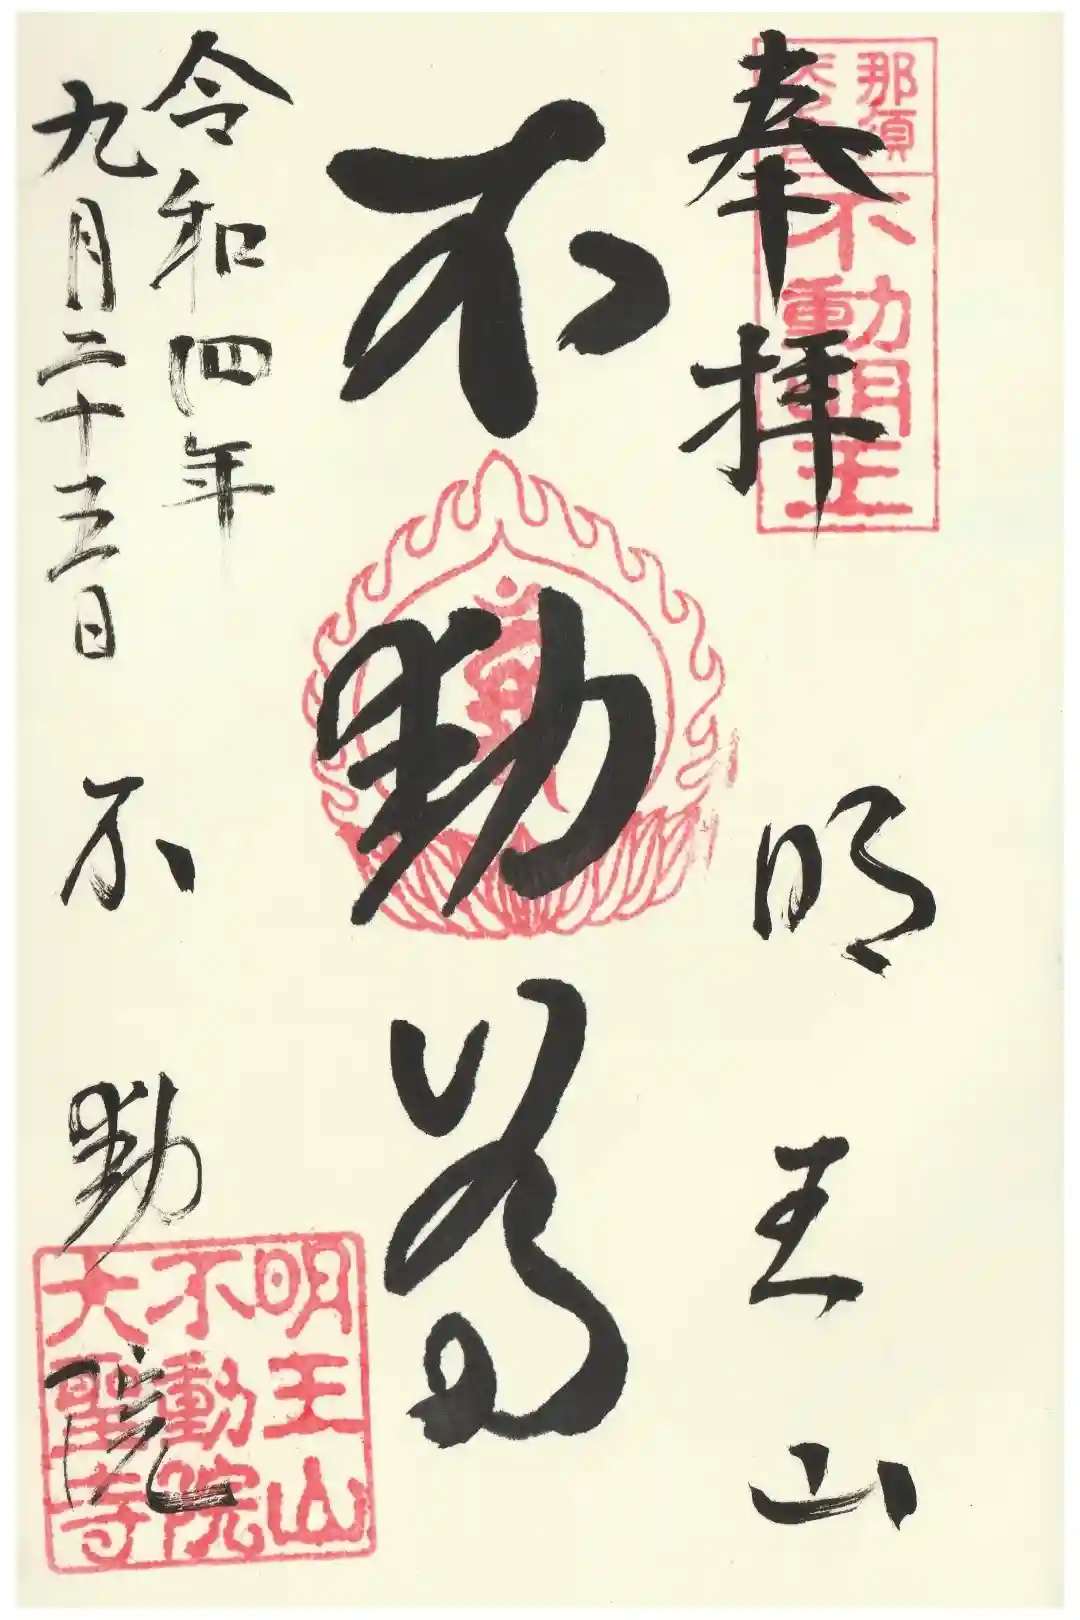 那須
不動明王
奉拝
明王山
不動尊
令和四年
九月二十五日
不動院
明王山
不動院
大聖寺